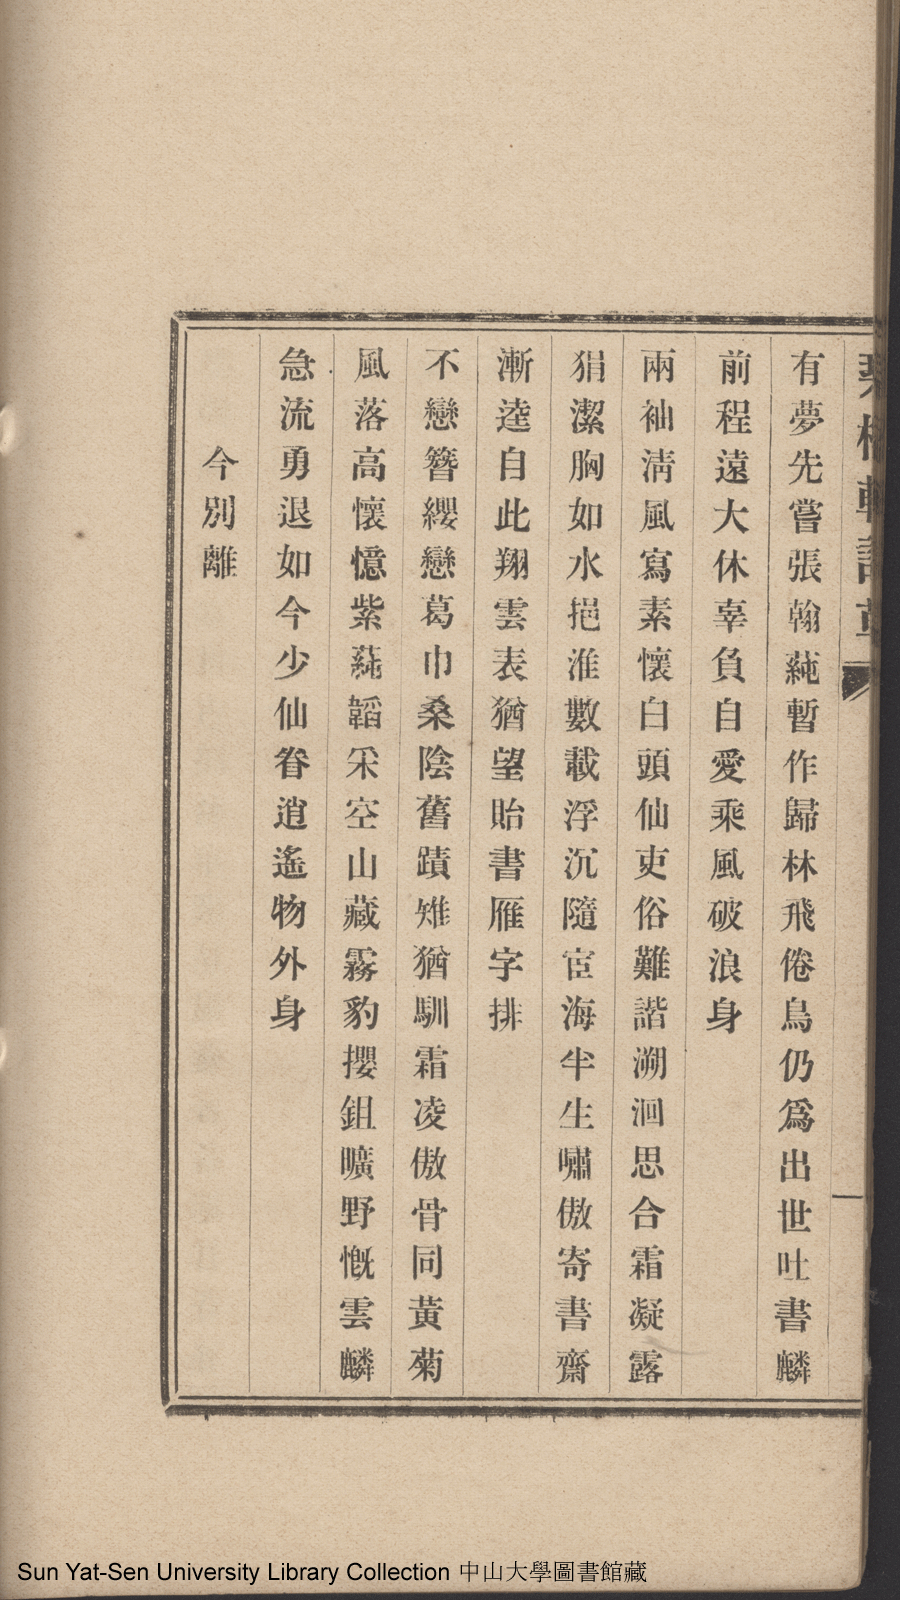 有夢先嘗張翰蒓暫作歸林飛倦鳥仍爲出世吐書麟
前程遠大休辜負自愛乘風破浪身
兩袖淸風寫素懷白頭仙吏俗難諧溯洄思合霜凝露
狷潔胸如水挹淮數載浮沉隨宦海半生嘯傲寄書齋
漸逵自此翔雲表猶望貽書雁字排
不戀簪纓戀葛巾桑陰舊蹟雉猶馴霜凌傲骨同黃菊
風落高懷憶紫蒓韜采空山藏霧豹攖鉏曠野慨雲麟
急流勇退如今少仙眷逍遙物外身
今別離
Sun Yat-Sen University Library Collection 中山大學圖書館藏